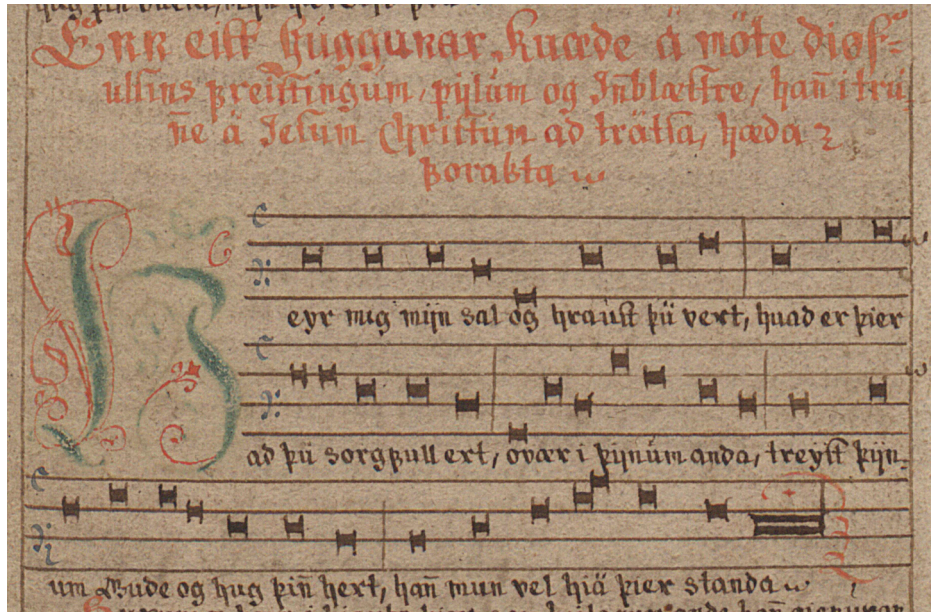 Enn eitt huggunar kuæde ä möte diof-
ulsins freistingum, pijlum og Jnblæstre, hañ i trü
ñe ä Jesum Christum ad trätsa, hæda ꝛ
forakta
Heyr mig mijn sal og hraust þü vert, huad er þier
ad þü sorgfull ert, ovær i þijnum anda, treyst þijn-
um Gude og hug þiñ hert, hañ mun vel hiä þier standa